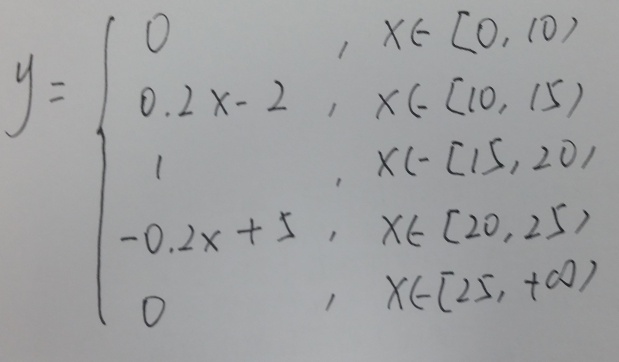 y = { 0 , x∈[0, 10)
0.2x-2 , x∈[10, 15)
1 , x∈[15, 20)
-0.2x+5 , x∈[20, 25)
0 , x∈[25, +∞)